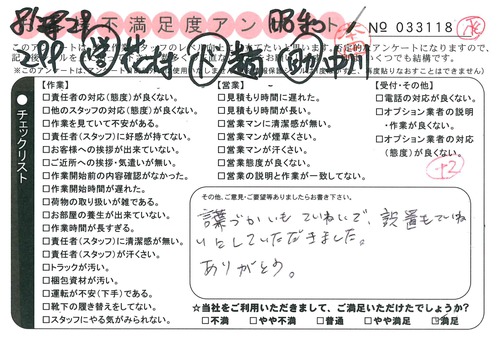 お客様不満足度アンケート
№ 033118
このアンケートは
いくつでも結構です。
チェックリスト
【作業】
□責任者の対応(態度)が良くない。
□他のスタッフの対応(態度)が良くない。
□作業を見ていて不安がある。
□責任者(スタッフ)に好感が持てない。
□お客様への挨拶が出来ていない。
□ご近所への挨拶・気遣いが無い。
□作業開始前の内容確認がなかった。
□作業開始時間が遅れた。
□荷物の取り扱いが雑である。
□お部屋の養生が出来ていない。
□作業時間が長すぎる。
□責任者(スタッフ)に清潔感が無い。
□責任者(スタッフ)が汗くさい。
□トラックが汚い。
□梱包資材が汚い。
□運転が不安(下手)である。
□靴下の履き替えをしてない。
□スタッフにやる気がみられない。
【営業】
□見積もり時間に遅れた。
□見積もり時間が長い。
□営業マンに清潔感が無い。
□営業マンが煙草くさい。
□営業マンが汗くさい。
□営業態度が良くない。
□営業の説明と作業が一致してない。
【受付・その他】
□電話の対応が良くない。
□オプション業者の説明
・作業が良くない。
□オプション業者の対応
(態度)が良くない。
+2
その他、ご意見・ご要望等ありましたらお書き下さい。
言葉づかいもていねいで、設置もていね
いにしていただきました。
ありがとう。
☆当社をご利用いただきまして、ご満足いただけたでしょうか?
□不満 □やや不満 □普通 □やや満足 ☑満足